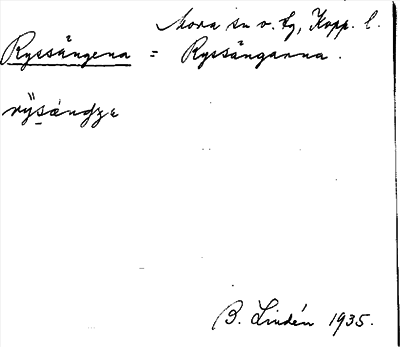 Mora sn o. tg, Kopp. l.
Ryssängena = Ryssänganna.
rÿsändze
B. Lindén 1935.